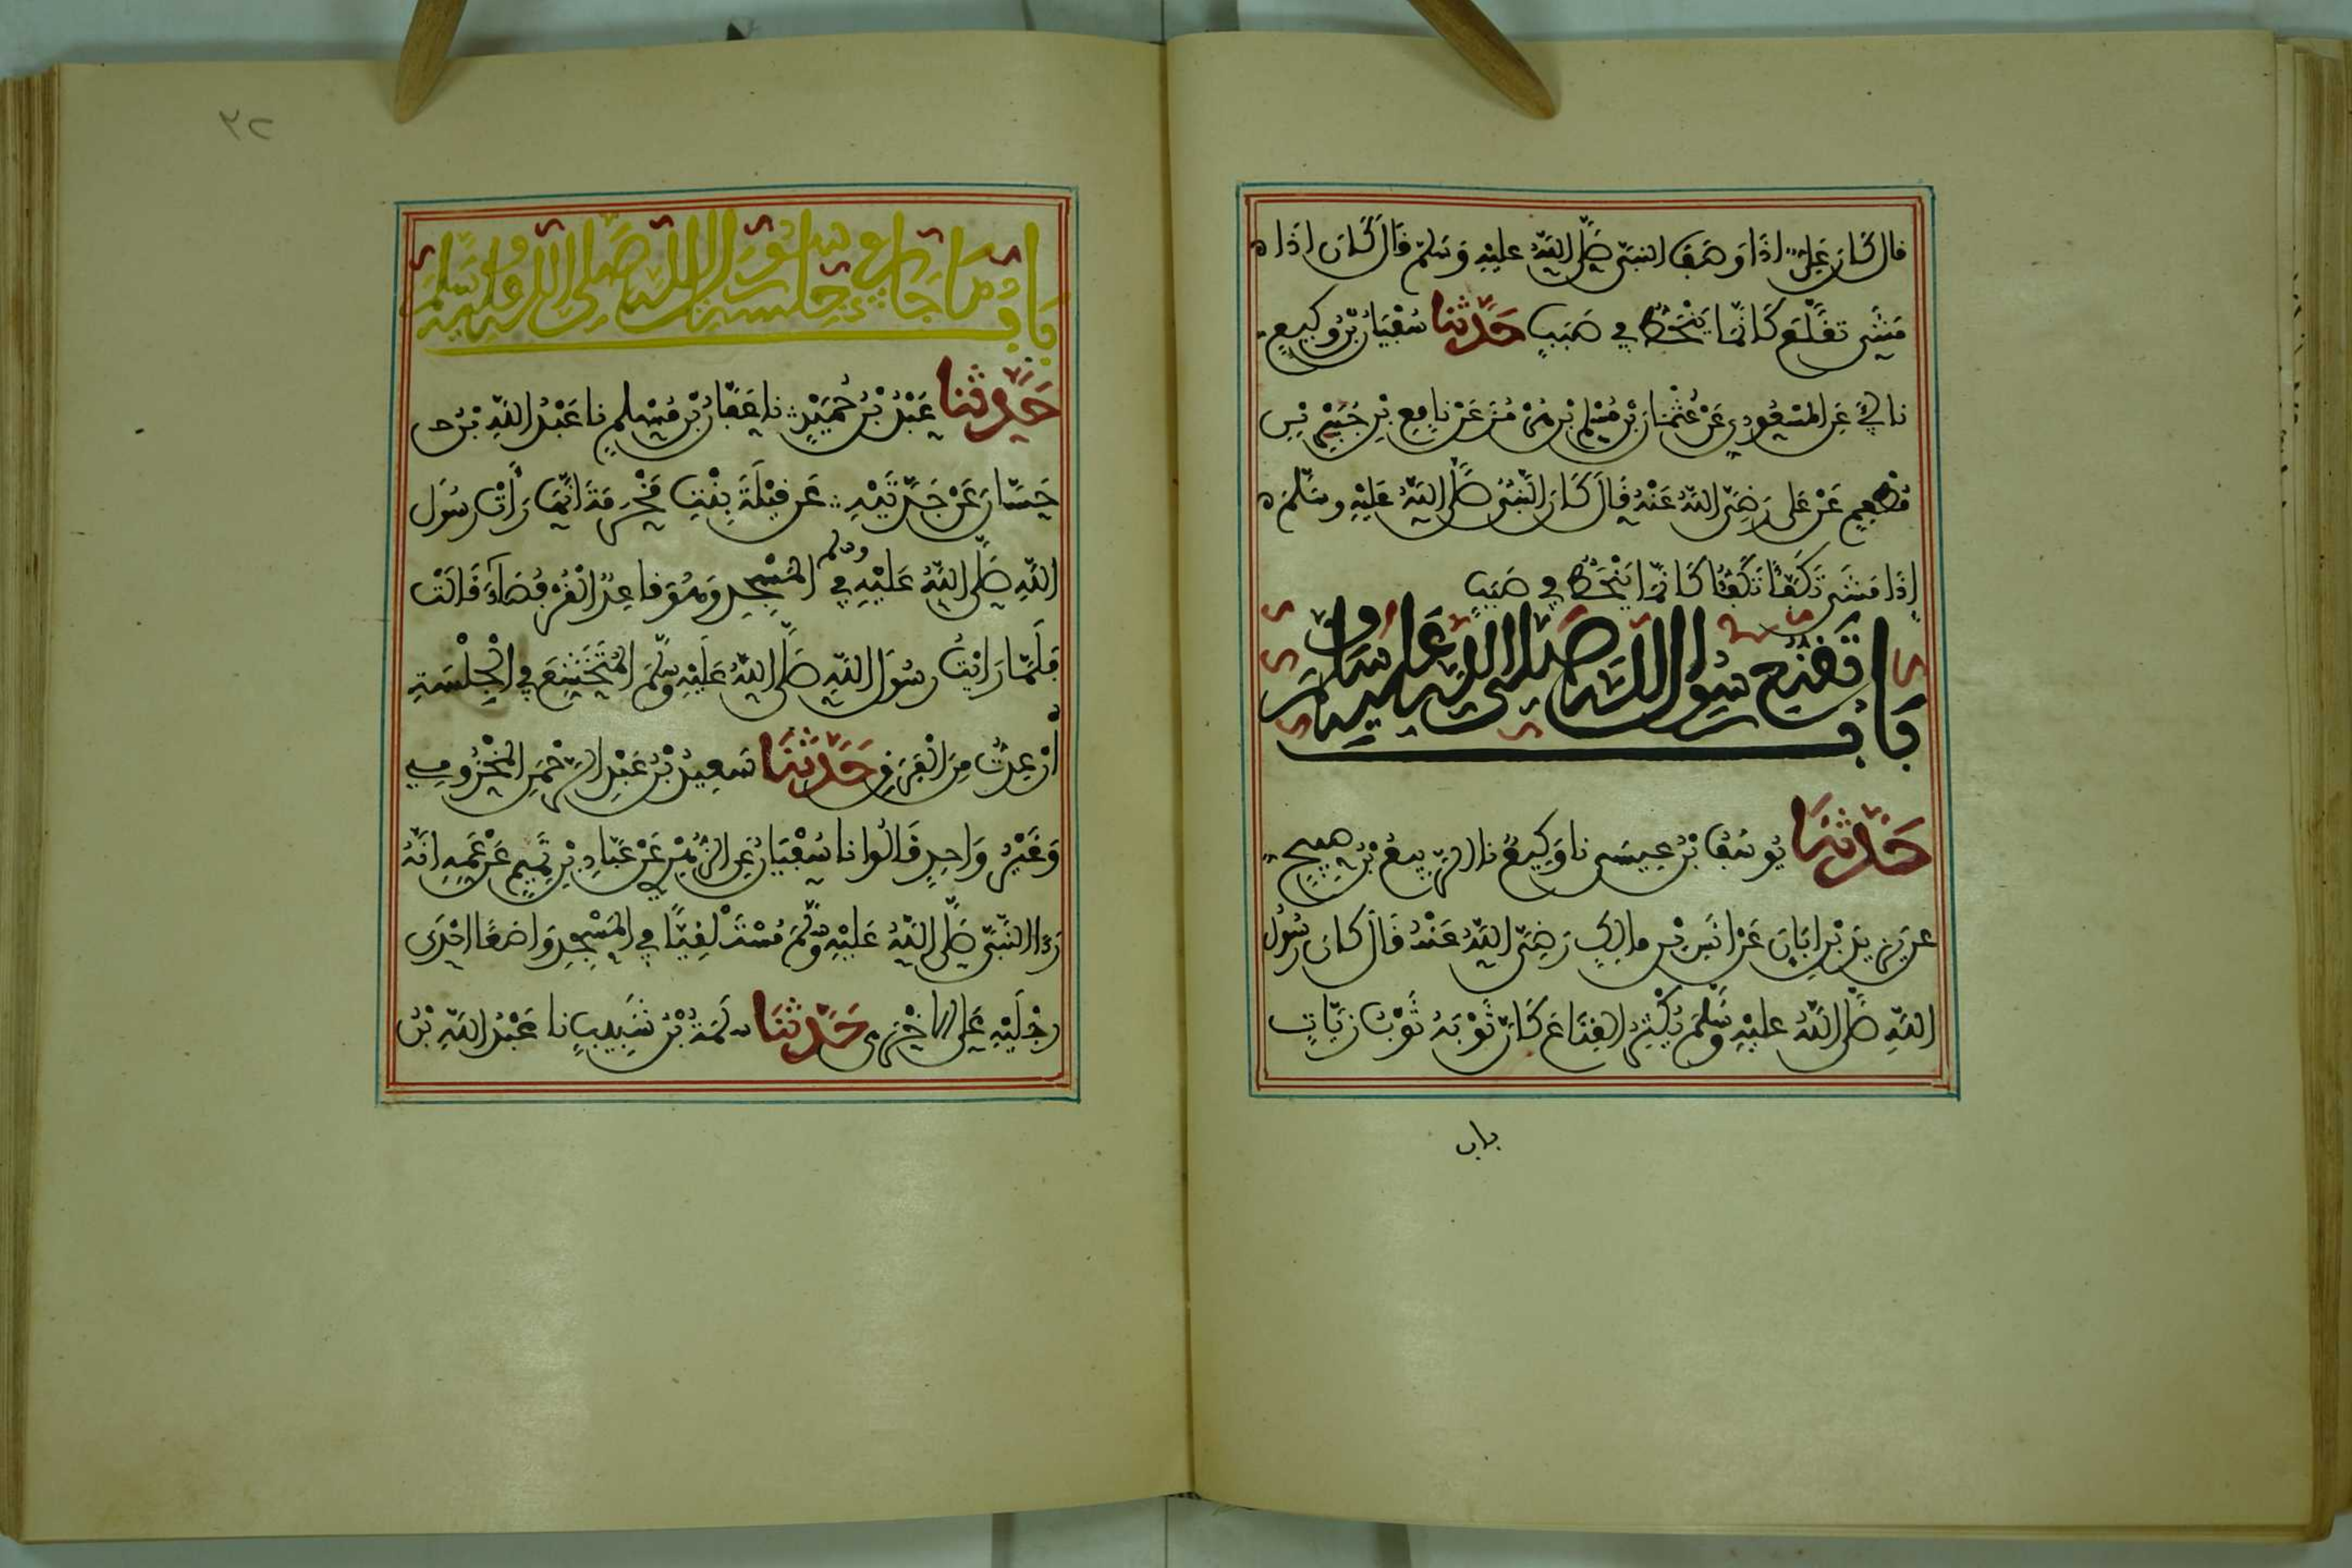 قال كَانَ عَلِىٌّ إذَا وَصَفَ النبىَّ صَلَّى اللهُ عليْهِ وَسَلم قَالَ كَانَ اذَا
مَشَى تقَلَّعَ كَانَّمَا يَنْحَطُّ فِي صَبَبٍ حَدَّثنا سُفْيَانُ بْنُ وكِيعٍ
نا أبي عَنِ المَسْعُودِيِ عَنْ عُثْمَانَ بْنِ مُسْلِمِ بْنِ هُرْمُزَ عَنْ نافِعِ بْنِ جُبَيْرِ بْنِ
مُطْعِمٍ عَنْ عَلِى رَضِىَ اللهُ عَنْهُ قَالَ كَانَ النَّبىُّ صَلَّى اللهُ عَلَيْهِ وسَلَّمَ
إذَا مَشَى تَكَفَّأَ تَكَفُّأ كَانَّمَا يَنْحَطُّ فِي صَبَبٍ
بَابٌ تَقَنُّعِ رسُول اللهِ صَلى اللهُ عَليْهِ وسَلمَ
حَدَّثَنَا يُوسُفُ بْنُ عِيسَى نا وَكِيعٌ نا الرَّبيعُ بْنُ صَبِيحٍ
عن يَزِيدَ بْنِ ابَانَ عَنْ انَسِ بْنِ مالِكٍ رَضِىَ اللهُ عَنْهُ قَالَ كَانَ رَسُولُ
اللهِ صَلَّى اللهُ عليْهِ وَسَلَّمَ يُكْثِرُ القِنَاعَ كَأَنَّ ثَوْبَهُ ثَوْبُ زيَّاتٍ
باب
٣٢
بَابُ مَا جَاءَ فِي جِلْسَةِ رسُولِ اللهِ صَلى اللهُ عليْهِ وَسَلمَ
حَدَّثنا عَبْدُ بْنُ حُمَيْدٍ نا عَفَّانُ بْنُ مُسْلِمٍ نا عَبْدُ اللهِ بْنُ
حَسَّانَ عَنْ جَدَّتَيْهِ عَن قَيْلَةَ بِنْتِ مَخْرَمَةَ انَّهَا رَأتْ رَسُولَ
اللهِ صَلَّى اللهُ عَلَيْهِ وسلم فِي المَسْجِدِ وَهُوَ قاعِدٌ الْقُرْفُصَاءَ قَالَتْ
فَلَمَّا رَايْتُ رسُولَ اللهِ صَلَّى اللهُ عَلَيْهِ وسَلَّمَ المُتَخَشِّعَ فِي الْجِلْسَةِ
أُرْعِدْتُ مِنَ الْفَرَقِ حَدَّثَنَا سَعِيدُ بْنُ عَبْدِ الرَّحْمَنِ المَخْزُومِي
وَغَيْرُ وَاحِدٍ قَالُوا نا سُفْيَانُ عَنِ الزُّهْرِي عَنْ عَبَّادِ بْنِ تَمِيمٍ عَنْ عَمِّهِ انَّهُ
رَءا النَّبىَّ صَلَّى اللهُ عَلَيْهِ وسَلَّمَ مُسْتَلْقِيًا فِي المَسْجِدِ وَاضعًا احْدَى
رِجْلَيْهِ عَلَى الاخْرَى حَدَّثَنَا سَلَمَةُ بْنُ شَبِيبٍ نا عَبْدُ اللهِ بْنُ